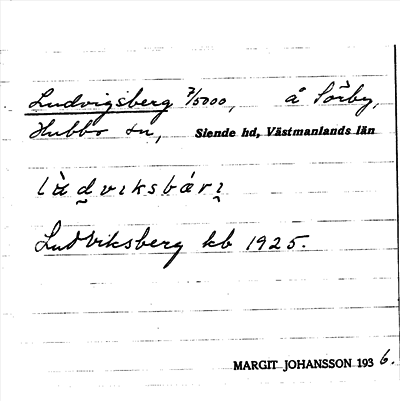 Ludvigsberg 7/5000, å Sörby,
Hubbo sn, Siende hd, Västmanlands län
lùdviksbæ̀rị
Ludviksberg kb 1925.
MARGIT JOHANSSON 1936.